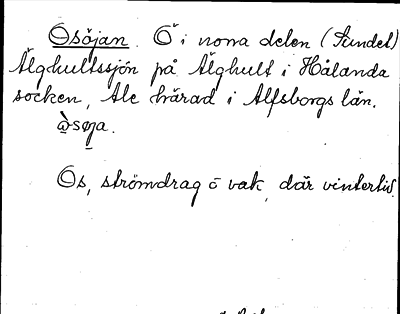 Osöjan. Ö i norra delen (Sundet)
Älghultssjön på Älghult i Hålanda
socken, Ale härad i Älfsborgs län.
Os, strömdrag o vak, där vintertid.